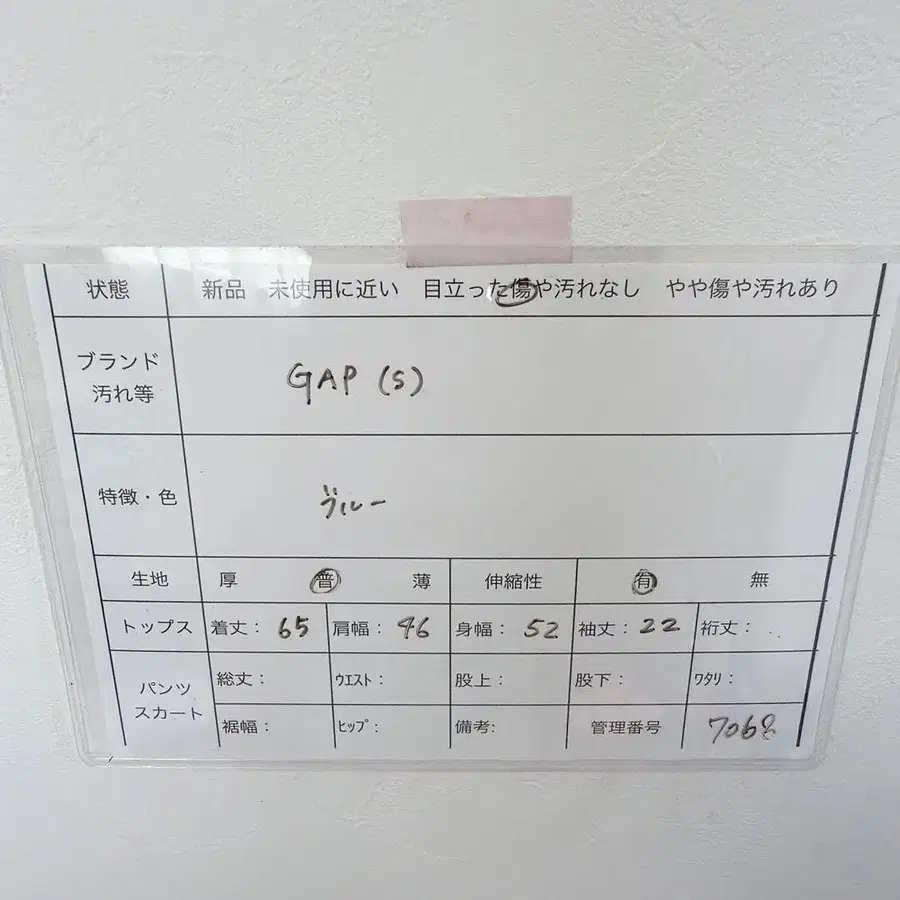 状態 新品 未使用に近い 目立った傷や汚れなし やや傷や汚れあり
ブランド
汚れ等
GAP (S)
特徴・色 ブルー
生地 厚 普 薄 伸縮性 有 無
トップス 着丈： 65 肩幅： 46 身幅： 52 袖丈： 22 裄丈：
パンツ
スカート
総丈： ｳｴｽﾄ： 股上： 股下： ﾜﾀﾘ：
裾幅： ﾋｯﾌﾟ： 備考: 管理番号 7068